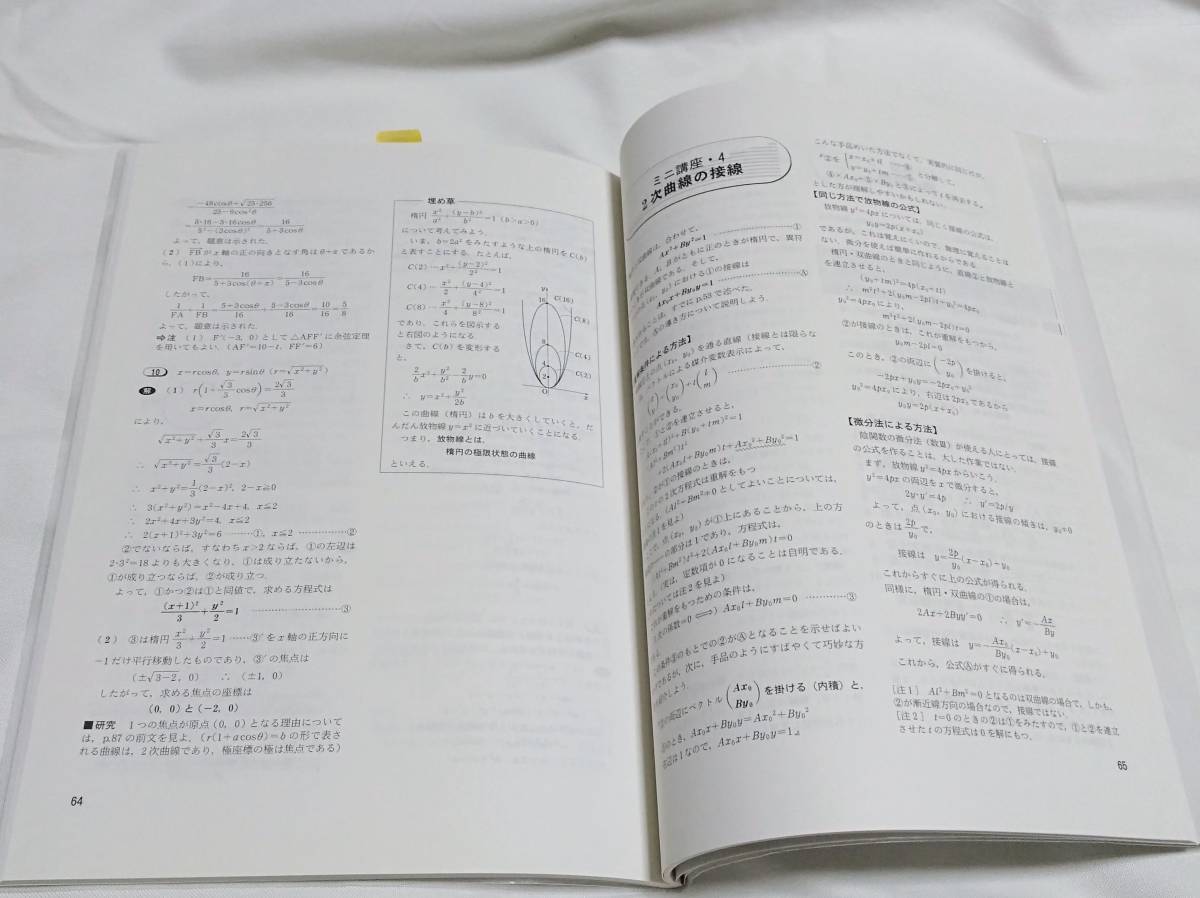 よって,題意は示された.
(2) FBがx軸の正の向きとなす角はθ+πであるか
ら,(1)により,
FB=16/(5+3cos(θ+π))=16/(5−3cosθ)
したがって,
1/FA+1/FB=(5+3cosθ)/16+(5−3cosθ)/16=10/16=5/8
よって,題意は示された.
⇨注 (1) F'(−3, 0)として△AFF'に余弦定理
を用いてもよい.(AF'=10−r, FF'=6)
10 x=rcosθ, y=rsinθ (r=√(x²+y²))
解 (1) r(1+(√3/3)cosθ)=2√3/3
x=rcosθ, r=√(x²+y²)
により,
√(x²+y²)+(√3/3)x=2√3/3
∴ √(x²+y²)=(√3/3)(2−x)
∴ x²+y²=(1/3)(2−x)², 2−x≧0
∴ 3(x²+y²)=x²−4x+4, x≦2
∴ 2x²+4x+3y²=4, x≦2
∴ 2(x+1)²+3y²=6 ……①, x≦2 ……②
②でないならば,すなわちx>2ならば,①の左辺は
2·3²=18よりも大きくなり,①は成り立たないから,
①が成り立つならば,②が成り立つ.
よって,①かつ②は①と同値で,求める方程式は
(x+1)²/3+y²/2=1 ……③
(2) ③は楕円x²/3+y²/2=1……③'をx軸の正方向に
−1だけ平行移動したものであり,③'の焦点は
(±√(3−2), 0) ∴ (±1, 0)
したがって,求める焦点の座標は
(0, 0)と(−2, 0)
■研究 1つの焦点が原点(0, 0)となる理由について
は,p.87の前文を見よ.(r(1+acosθ)=bの形で表さ
れる曲線は,2次曲線であり,極座標の極は焦点である)
64
埋め草
楕円 x²/a²+(y−b)²/b²=1 (b>a>0)
について考えてみよう.
いま,b=2a²をみたすような上の楕円をC(b)
と表すことにする.たとえば,
C(2)…x²+(y−2)²/2²=1
C(4)…x²/2+(y−4)²/4²=1
C(8)…x²/4+(y−8)²/8²=1
であり,これらを図示する
と右図のようになる
さて,C(b)を変形する
と,
(2/b)x²+y²/b²−(2/b)y=0
∴ y=x²+y²/2b
この曲線(楕円)はbを大きくしていくと,だ
んだん放物線y=x²に近づいていくことになる.
つまり,放物線とは,
楕円の極限状態の曲線
といえる.
y
16
C(16)
C(8)
C(4)
C(2)
4
2
O
x
ミニ講座・4
2次曲線の接線
曲線は,合わせて,
Ax²+By²=1 ……①
A, Bがともに正のときが楕円で,異符
曲線である.そして,
(x₀, y₀)における①の接線は
Ax₀x+By₀y=1 ……Ⓐ
ることは,すでにp.53で述べた.
Ⓐの導き方について説明しよう.
による方法】
点(x₀, y₀)を通る直線(接線とは限らな
ベクトルによる媒介変数表示によって,
……②
できる.
①と②を連立させると,
+B(y₀+tm)²=1
+2(Ax₀l+By₀m)t+Ax₀²+By₀²=1
が①の接線のときは,
の2次方程式は重解をもつ
(Al²+Bm²≠0としてよいことについては,
を見よ)
(x₀, y₀)が①上にあることから,上の方
の部分は1であり,方程式は,
(Al²+Bm²)t²+2(Ax₀l+By₀m)t=0
(実は,定数項が0になることは自明である.
については注2を見よ)
が重解をもつための条件は,
の係数=0⟺)Ax₀l+By₀m=0 ……③
条件③のもとでの②がⒶとなることを示せばよい
であるが,次に,手品のようにすばやくて巧妙な方
紹介しよう.
の両辺にベクトル(Ax₀ By₀)を掛ける(内積)と,
のとき,Ax₀x+By₀y=Ax₀²+By₀²
右辺は1なので,Ax₀x+By₀y=1」
こんな手品めいた方法でなくて,実質的に同じだが,
②を{x=x₀+tl ……④ y=y₀+tm ……⑤ と分解して,
④×Ax₀+⑤×By₀と③によってtを消去する」
とした方が理解しやすいかもしれない.
【同じ方法で放物線の公式】
放物線y²=4pxについては,同じく接線の公式は,
y₀y=2p(x+x₀)
であるが,これは覚えにくいので,無理に覚えることは
ない.微分を使えば簡単に作れるからである
楕円・双曲線のときと同じように,直線②と放物線と
を連立させると,
(y₀+tm)²=4p(x₀+tl)
∴ m²t²+2(y₀m−2pl)t+y₀²=4px₀
y₀²=4px₀より,
m²t²+2(y₀m−2pl)t=0
②が接線のときは,これが重解をもつから,
y₀m−2pl=0
このとき,②の両辺に(−2p y₀)を掛けると,
−2px+y₀y=−2px₀+y₀²
y₀²=4px₀より,右辺は2px₀であるから
y₀y=2p(x+x₀)
【微分法による方法】
陰関数の微分法(数Ⅲ)が使える人にとっては,接線
の公式を作ることは,大した作業ではない.
まず,放物線y²=4pxからいこう.
y²=4pxの両辺をxで微分すると,
2y·y'=4p ∴ y'=2p/y
よって,点(x₀, y₀)における接線の傾きは,y₀≠0
のときは2p/y₀で,
接線は y=(2p/y₀)(x−x₀)+y₀
これからすぐに上の公式が得られる.
同様に,楕円・双曲線の①の場合は,
2Ax+2Byy'=0 ∴ y'=−Ax/By
よって,接線は y=−(Ax₀/By₀)(x−x₀)+y₀
これから,公式Ⓐがすぐに得られる.
[注1] Al²+Bm²=0となるのは双曲線の場合で,しかも,
②が漸近線方向の場合なので,接線ではない.
[注2] t=0のときの②は①をみたすので,①と②を連立
させたtの方程式は0を解にもつ.
65